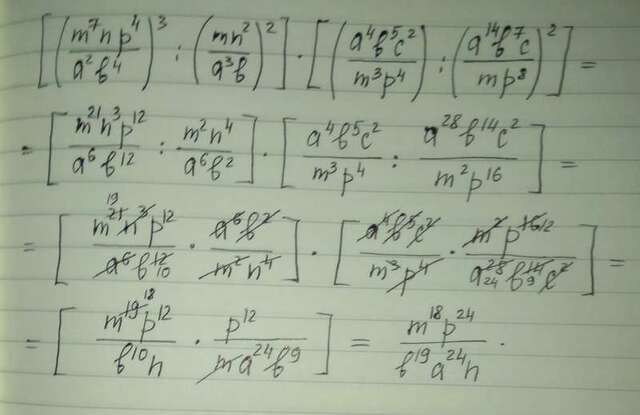 [(m⁷np⁴/a²b⁴)³ : (mn²/a³b)²] · [(a⁴b⁵c²/m³p⁴) : (a¹⁴b⁷c/mp⁸)²] =
= [m²¹n³p¹²/a⁶b¹² : m²n⁴/a⁶b²] · [a⁴b⁵c²/m³p⁴ : a²⁸b¹⁴c²/m²p¹⁶] =
= [m²¹ ¹⁹n³p¹²/a⁶b¹² ¹⁰ · a⁶b²/m²n⁴] · [a⁴b⁵c²/m³p⁴ · m²p¹⁶ ¹²/a²⁸ ²⁴b¹⁴ ⁹c²] =
= [m¹⁹ ¹⁸p¹²/b¹⁰n · p¹²/ma²⁴b⁹] = m¹⁸p²⁴/b¹⁹a²⁴n .